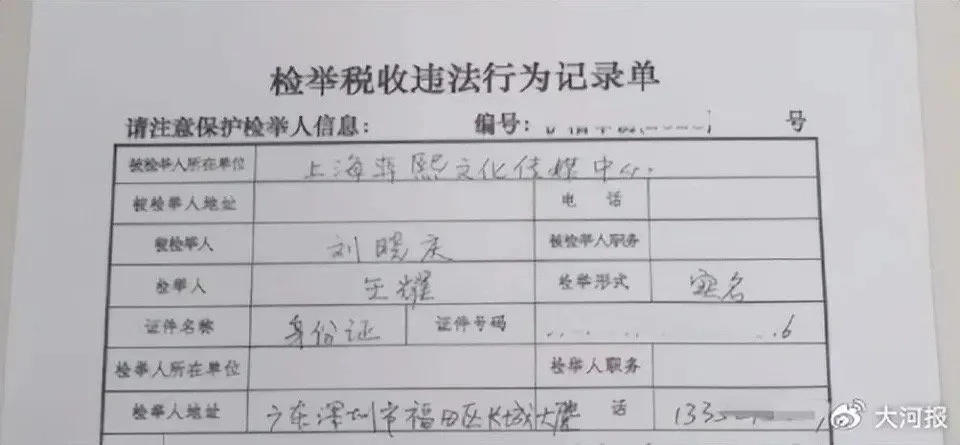 检举税收违法行为记录单
请注意保护检举人信息： 编号： 号
被检举人所在单位 上海 熙文化传媒中心
被检举人地址 电 话
被检举人 刘晓庆 被检举人职务
检举人 王耀 检举形式 实名
证件名称 身份证 证件号码 6
检举人所在单位 检举人职务
检举人地址 广东深圳市福田区长城大厦 话 133
大河报